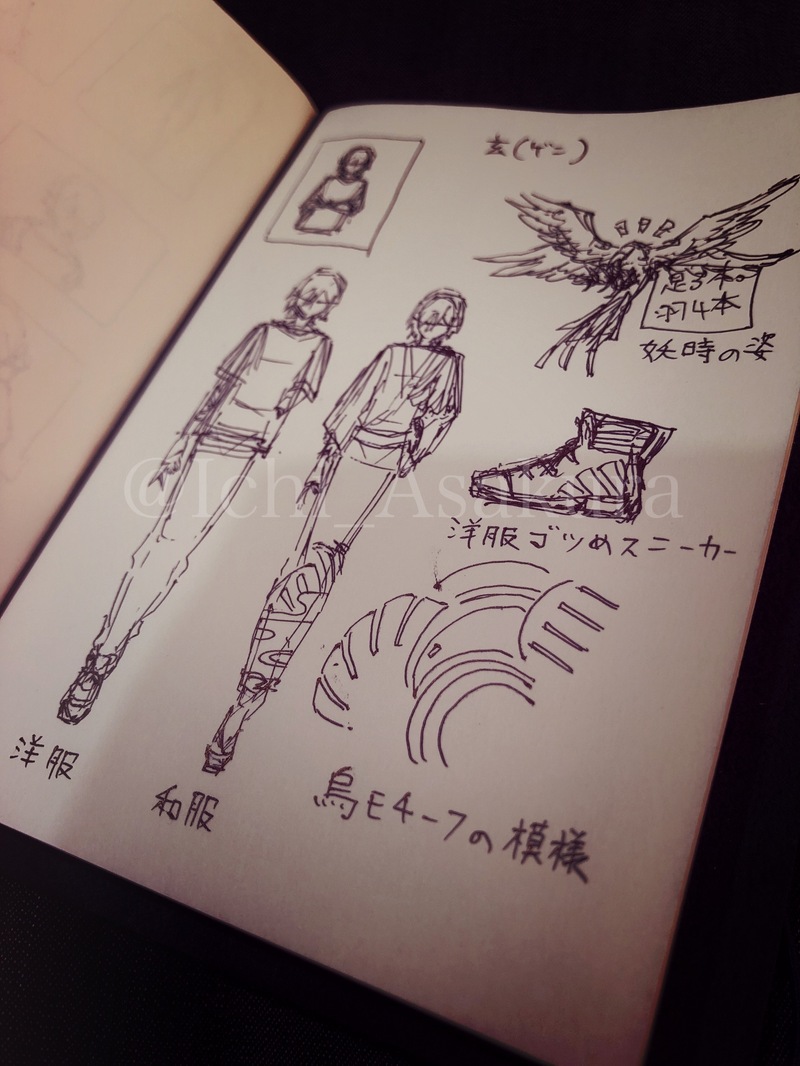 玄(ゲン)
足3本。
羽4本
妖時の姿
@Ichi_Asakura
洋服ゴツめスニーカー
洋服
和服
烏モチーフの模様